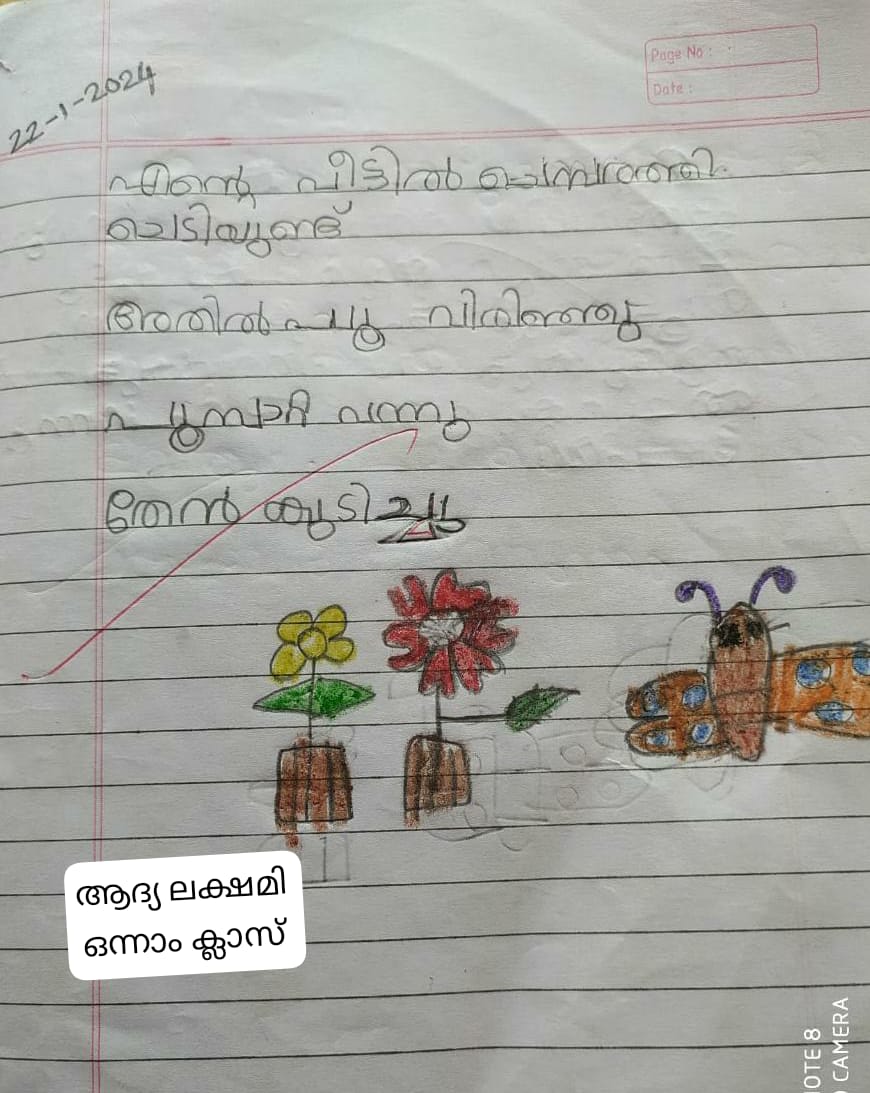 Page No :
Date :
22-1-2024
എന്റെ വീട്ടിൽ ചെമ്പരത്തി
ചെടിയുണ്ട്
അതിൽ പൂ വിരിഞ്ഞു
പൂമ്പാറ്റ വന്നു
തേൻ കുടിച്ചു
ആദ്യ ലക്ഷമി
ഒന്നാം ക്ലാസ്